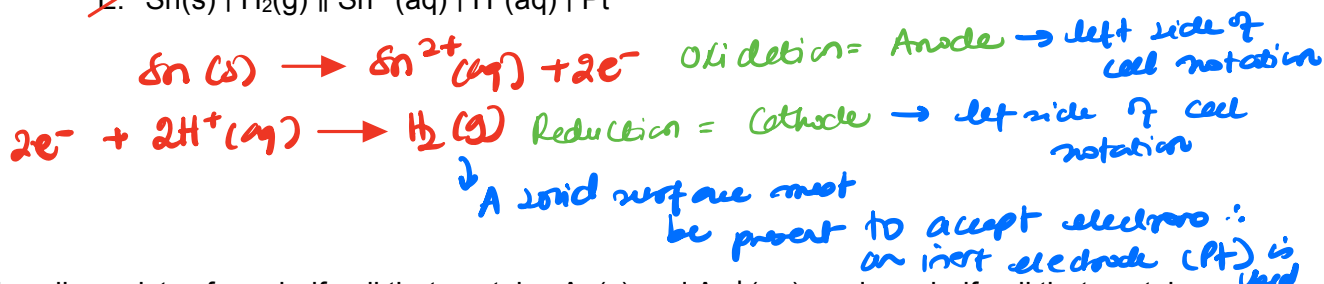 E. Sn(s) | H₂(g) || Sn²⁺(aq) | H⁺(aq) | Pt
Sn (s) → Sn²⁺ (aq) + 2e⁻ Oxidation = Anode → left side of
cell notation
2e⁻ + 2H⁺ (aq) → H₂ (g) Reduction = Cathode → left side of cell
notation
↓ A solid surface must
be present to accept electrons ∴
an inert electrode (Pt) is
used